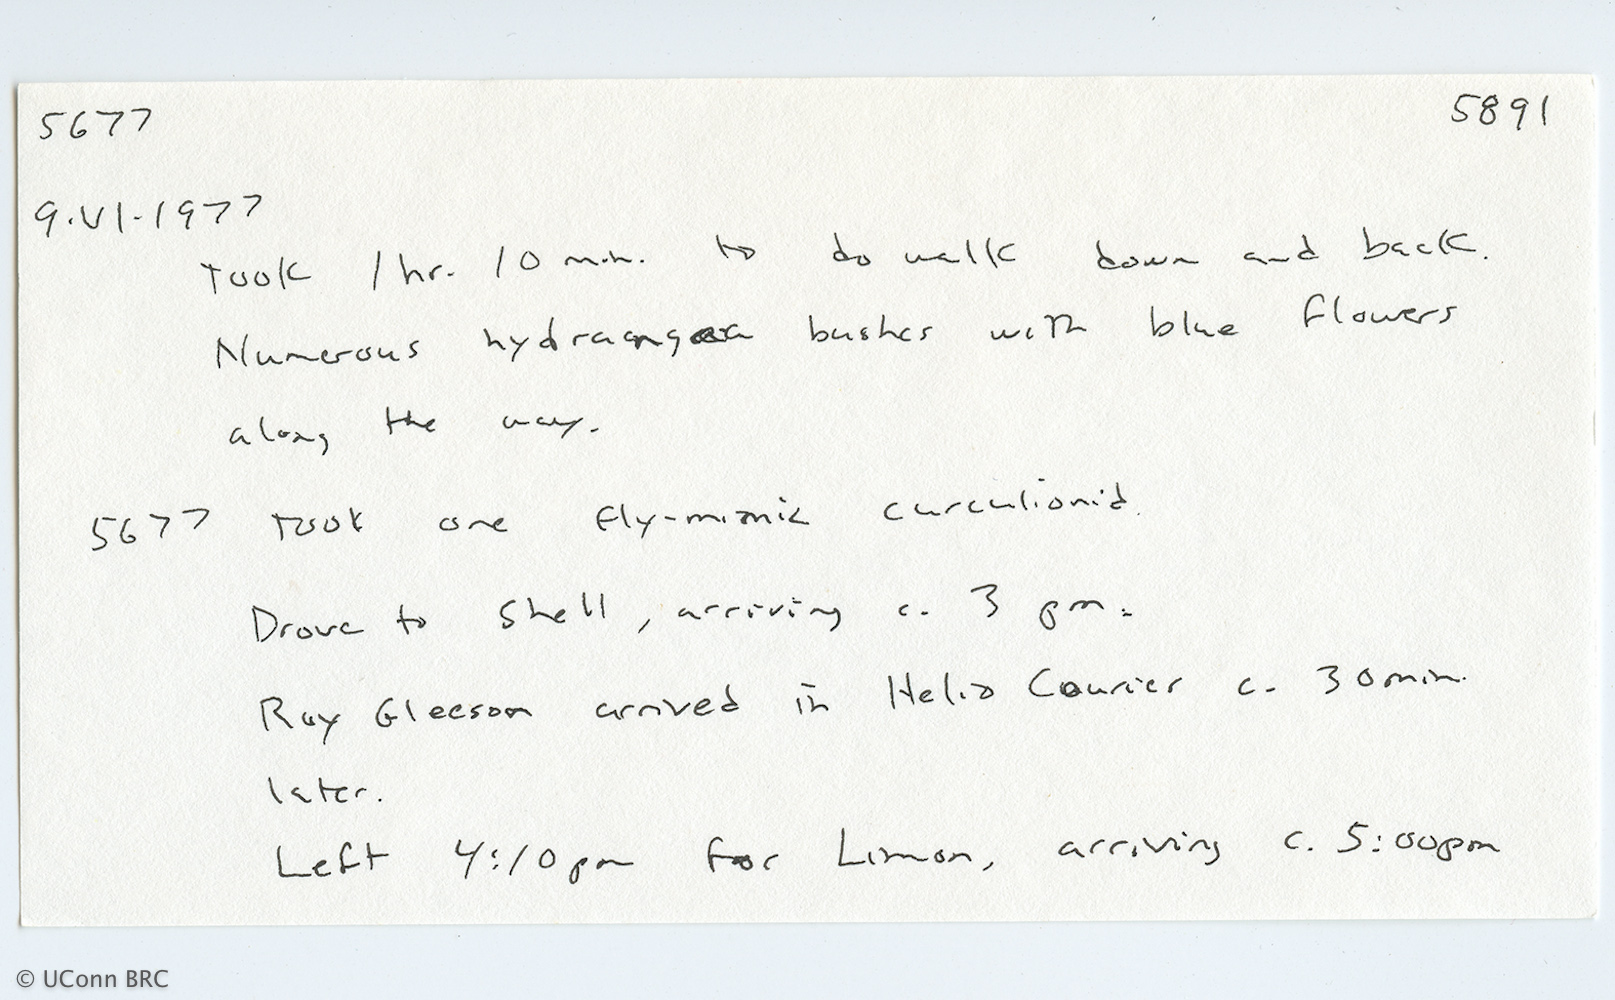 5677 5891
9.VI-1977
Took 1hr. 10 min. to do walk down and back.
Numerous hydrangea bushes with blue flowers
along the way.
5677 Took one fly-mimic curculionid.
Drove to Shell, arriving c. 3 pm.
Roy Gleeson arrived in Helio Courier c. 30min.
later.
Left 4:10pm for Limon, arriving c. 5:00pm
© UConn BRC